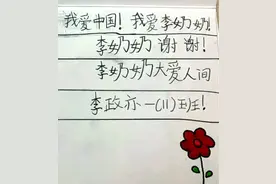 我爱中国！我爱李奶奶！
李奶奶谢谢！
李奶奶大爱人间
李政亦一(11)班！